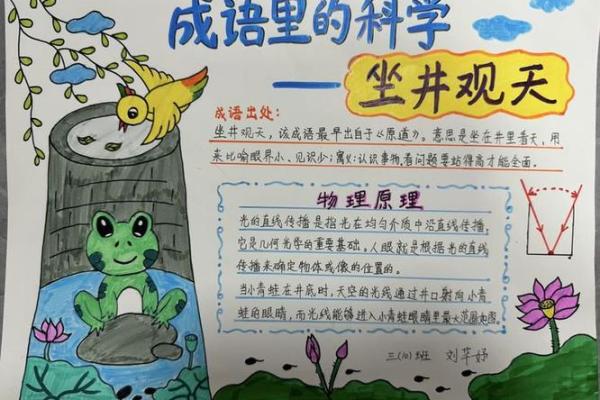 成语里的科学
——坐井观天
成语出处:
坐井观天,该成语最早出自于《原道》。意思是坐在井里看天,用
来比喻眼界小、见识少;寓以:认识事物,看问题要站得高才能全面。
物理原理
光的直线传播是指光在均匀介质中沿直线传播,
它是几何光学的重要基础。人眼就是根据光的直线
传播来确定物体或像的位置的。
当小青蛙在井底时,天空的光线通过井口射向小青
蛙的眼睛,而光线能够进入小青蛙眼睛里最大范围如图。
三(10)班 刘芊妤